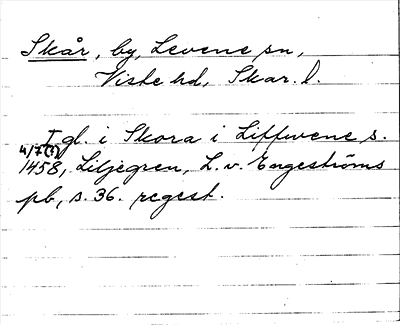 Skår, by, Levene sn,
Viste hd, Skar. l.
I gl. i Skora i Liffwene s.
4/7(?)
1458, Liljegren, L. v. Engeströms
pb, s. 36. regest.